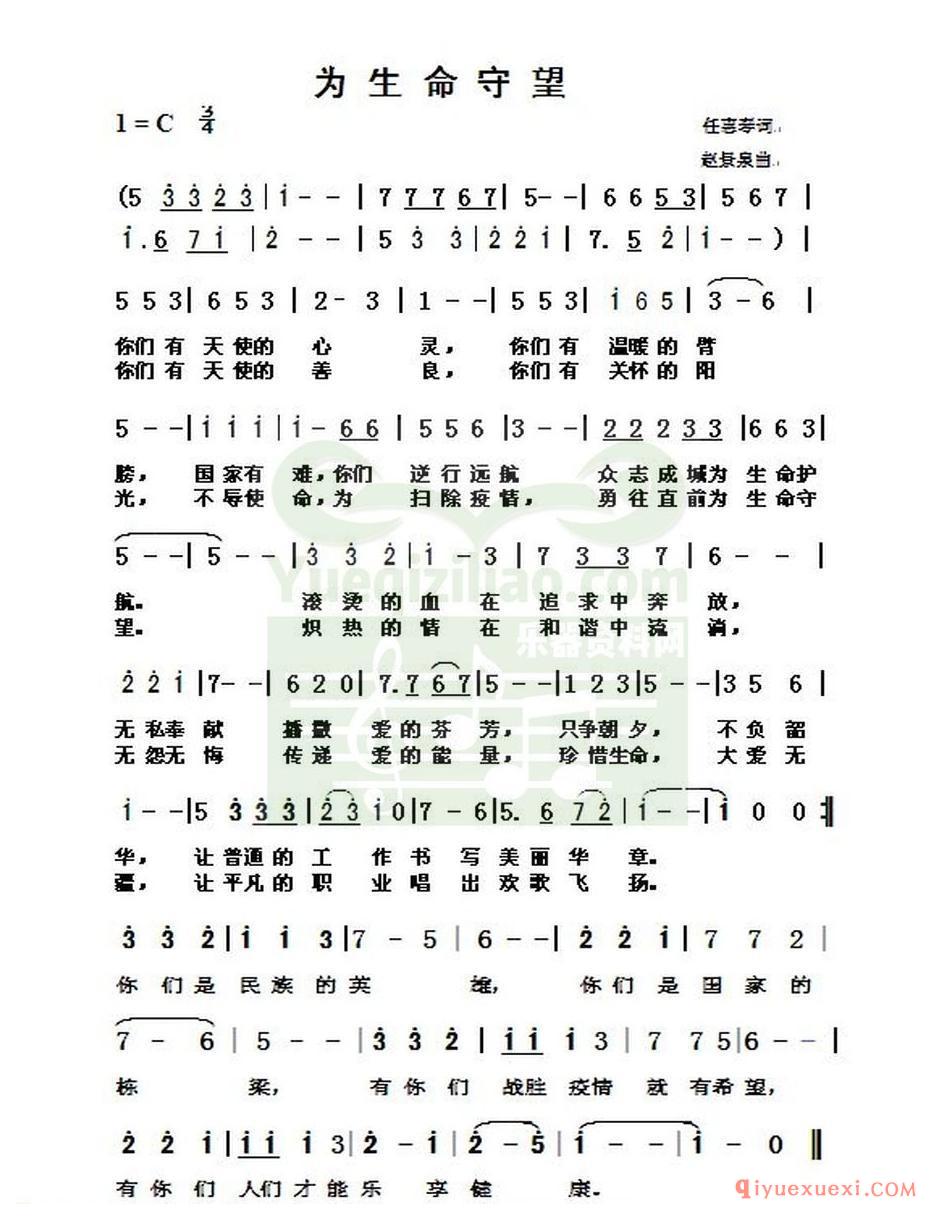 为生命守望
1=C 3/4
任喜孝词
赵景泉曲
(5 3̇3̇ 2̇3̇|1̇--|7 77 67|5--|66 53|567|
1̇.6 71̇|2̇--|5 3̇ 3̇|2̇ 2̇ 1̇|7.5 2̇|1̇--)|
553|653|2-3|1--|553|1̇65|3-6|
你们有天使的心灵，你们有温暖的臂
你们有天使的善良，你们有关怀的阳
5--|1̇1̇1̇|1̇-66|556|3--|22 2 33|663|
膀，国家有难，你们逆行远航 众志成城为生命护
光，不辱使命，为扫除疫情，勇往直前为生命守
5--|5--|3̇3̇2̇|1̇-3|7 33 7|6--|
航。滚烫的血在追求中奔放，
望。炽热的情在和谐中流淌，
2̇2̇1̇|7--|620|7.7 67|5--|123|5--|356|
无私奉献播撒爱的芬芳，只争朝夕，不负韶
无怨无悔传递爱的能量，珍惜生命，大爱无
1̇--|5 3̇ 3̇3̇|2̇3̇ 1̇0|7-6|5.6 72̇|1̇--|1̇00:‖
华，让普通的工作书写美丽华章。
疆，让平凡的职业唱出欢歌飞扬。
3̇3̇2̇|1̇1̇3|7-5|6--|2̇2̇1̇|772|
你们是民族的英雄，你们是国家的
7-6|5--|3̇3̇2̇|1̇1̇ 1̇3|7 75|6--|
栋梁，有你们战胜疫情就有希望，
2̇2̇1̇|1̇1̇ 1̇3|2̇-1̇|2̇-5|1̇--|1̇-0‖
有你们人们才能乐享健康。
Yueqiziliao.com
乐器资料网
qiyuexuexi.com